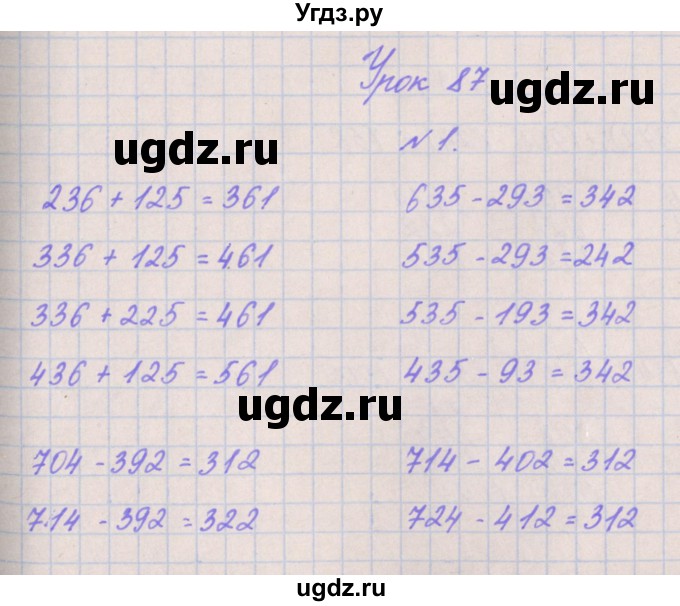 Угдз.ру
Урок 87
ugdz.ru
ugdz.ru
№1.
236 + 125 = 361
635 - 293 = 342
336 + 125 = 461
535 - 293 = 242
336 + 225 = 461
535 - 193 = 342
436 + 125 = 561
435 - 93 = 342
ugdz.ru
704 - 392 = 312
714 - 402 = 312
714 - 392 = 322
724 - 412 = 312
ugdz.ru